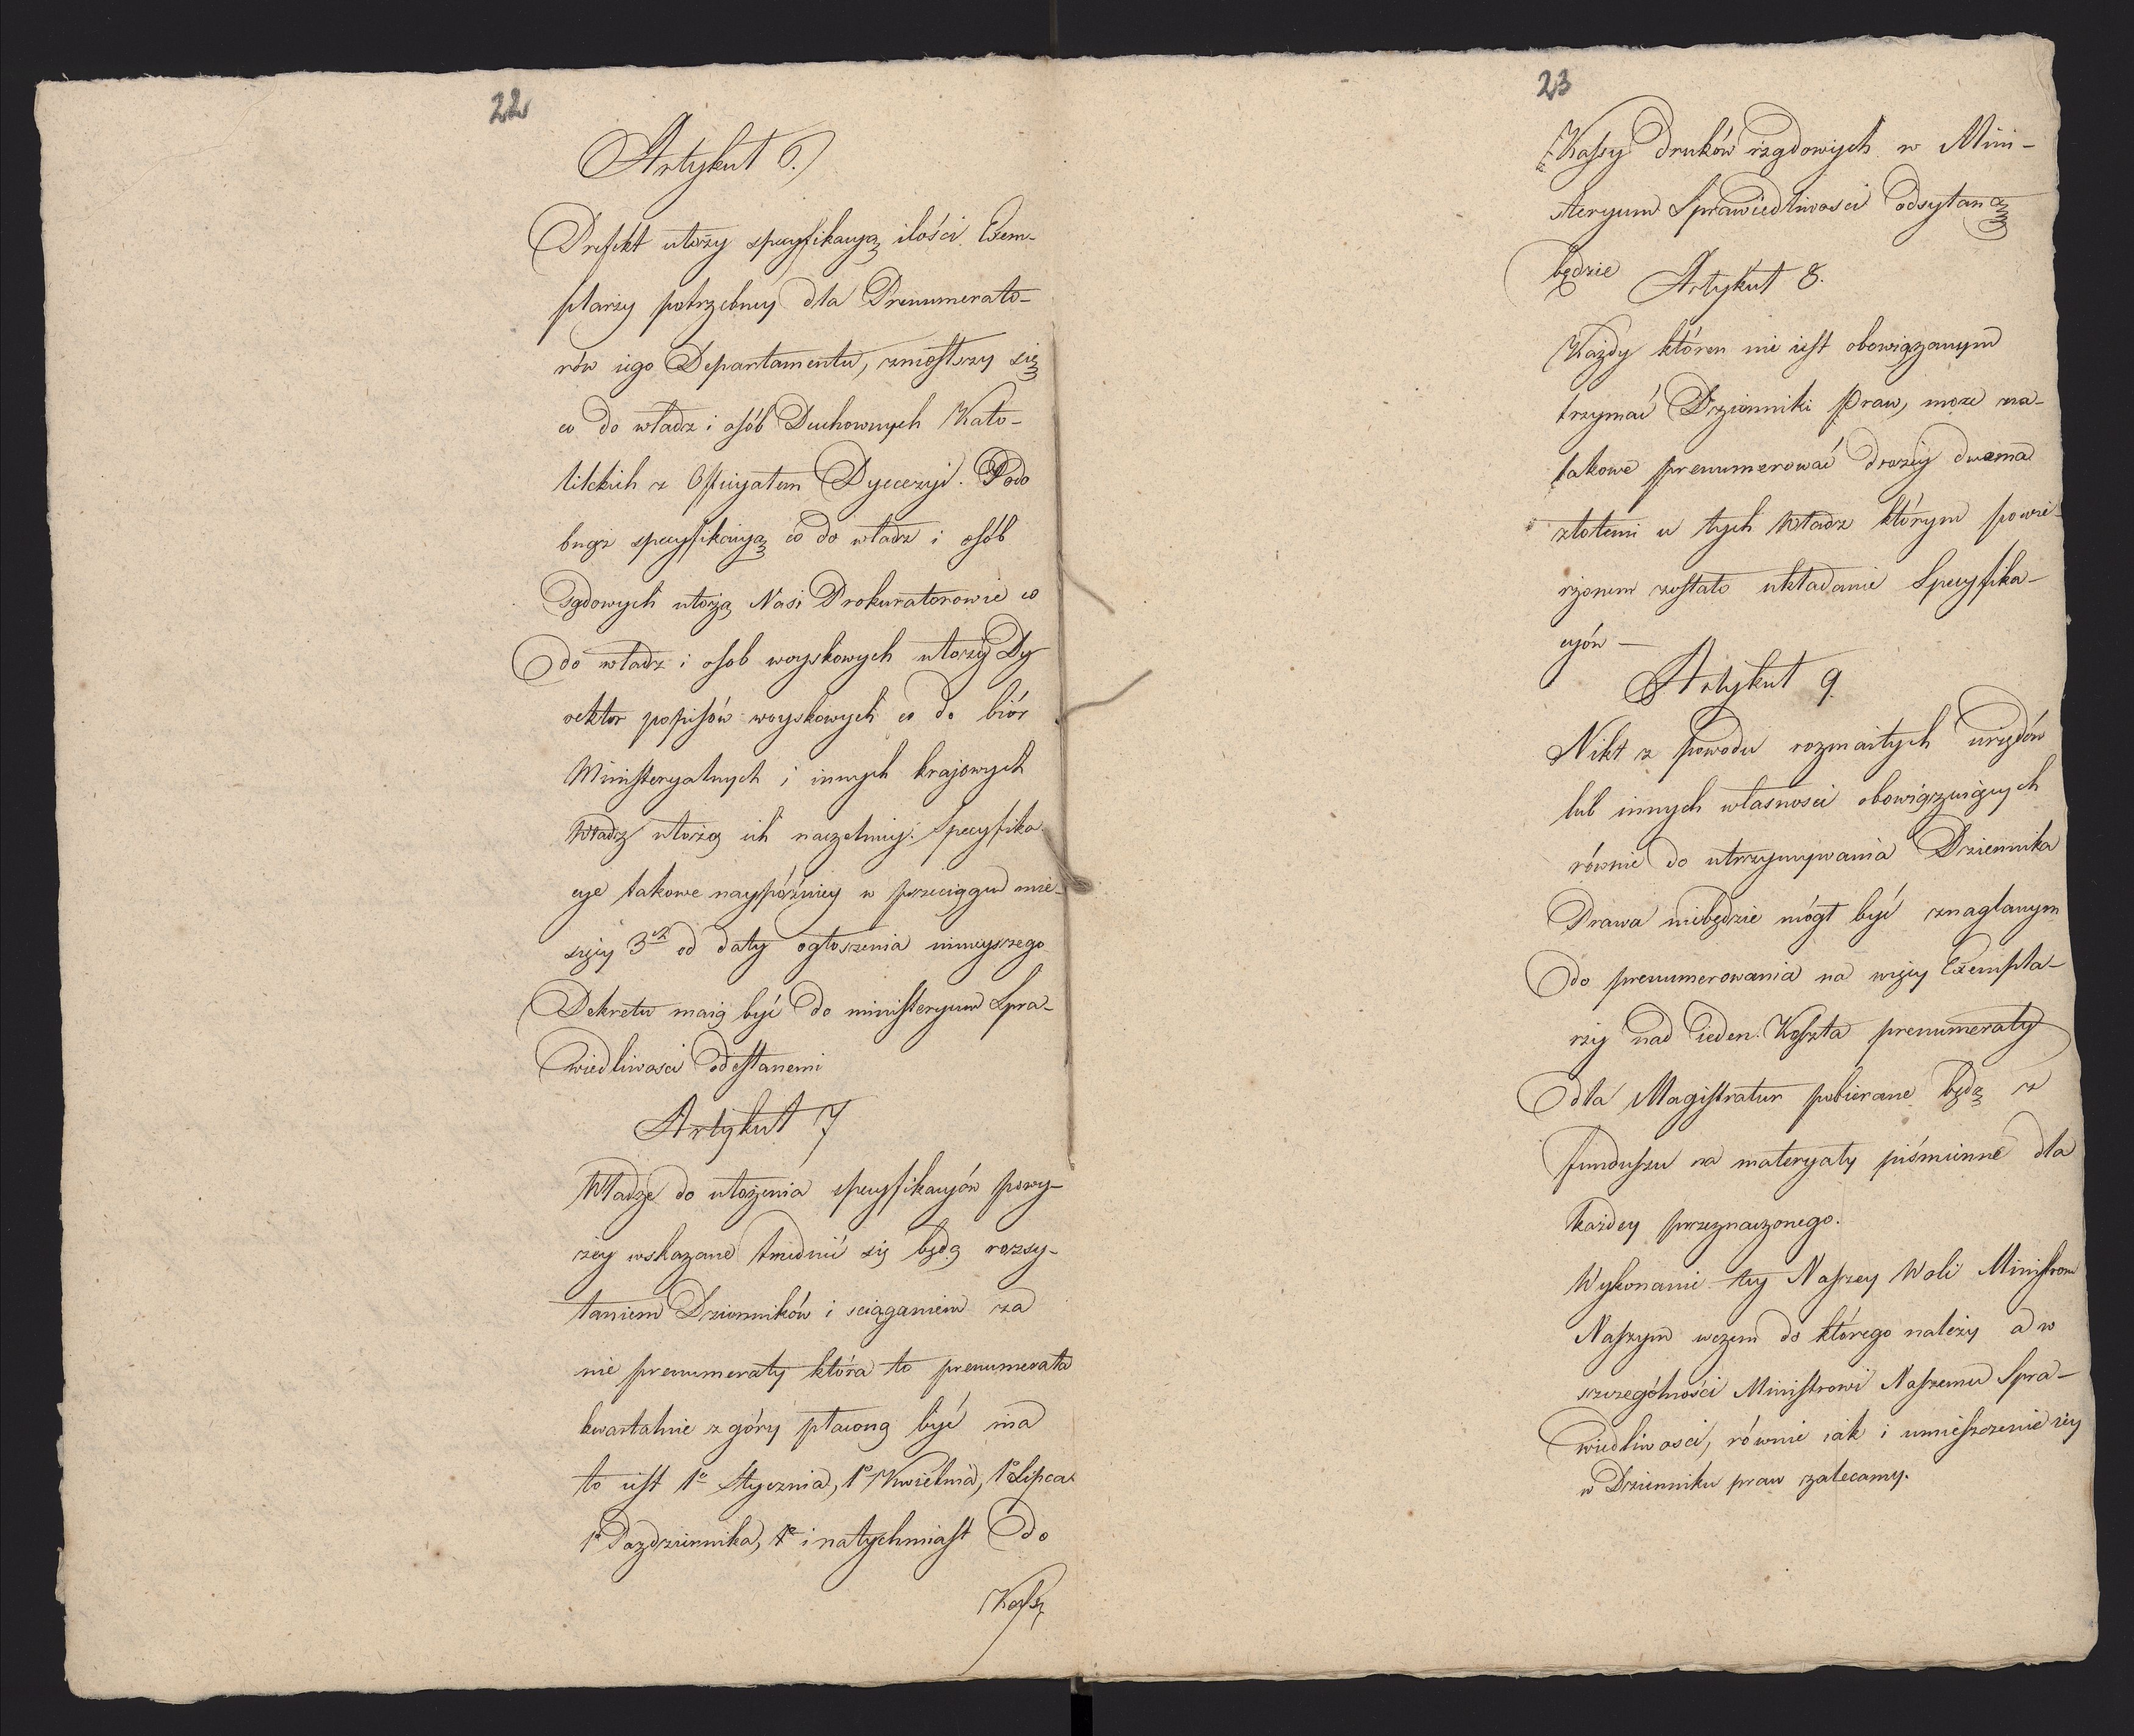 22
Artykuł 6.
Prefekt ułoży specyfikacyą ilości Exem-
plarzy potrzebney dla Prenumerato-
rów iego Departamentu, zniosłszy się
co do władz i osób Duchownych Kato-
lickich z Officyałem Dyecezyi. Podo
bnąż specyfikacyą co do władz i osób
Sądowych ułożą Nasi Prokuratorowie co
do władz i osob woyskowych ułoży Dy
rektor popisów woyskowych co do biór
Ministeryalnych i innych krajowych
Władz ułożą ich naczelnicy. Specyfika
cye takowe naypóźniey w przeciągu mie-
sięcy 3ch od daty ogłoszenia ninieyszego
Dekretu maią być do ministeryum Spra-
wiedliwosci odesłanemi
Artykuł 7
Władze do ułożenia specyfikacyów powy-
żey wskazane trudnić się będą rozsy-
łaniem Dzienników i sciąganiem za
nie prenumeraty która to prenumerata
kwartalnie z góry płaconą być ma
to iest 1o Stycznia, 1o Kwietnia, 1o Lipca
1o Pazdziernika, 1o i natychmiast do
Kassy
23
Kassy druków rządowych w Mini-
steryum Sprawiedliwosci odsyłaną
będzie
Artykuł 8.
Każdy któren nie iest obowiązanym
trzymać Dzienniki Praw, może na
takowe prenumerować drożey dwema
złotemi u tych Władz którym powie-
rzonem zostało układanie Specyfika-
cyów —
Artykuł 9
Nikt z powodu rozmaitych urzędów
lub innych własnosci obowiązuiących
równie do utrzymywania Dziennika
Prawa niebędzie mógł być znaglanym
do prenumerowania na więcy Exempla-
rzy nad ieden. Koszta prenumeraty
dla Magistratur pobierane będą z
funduszu na materyały piśmienne dla
każdey przeznaczonego.
Wykonanie tey Naszey Woli Ministrom
Naszym wczem do którego należy a w
szczególności Ministrowi Naszemu Spra-
wiedliwosci, równie iak i umieszczenie iey
w Dzienniku praw zalecamy.